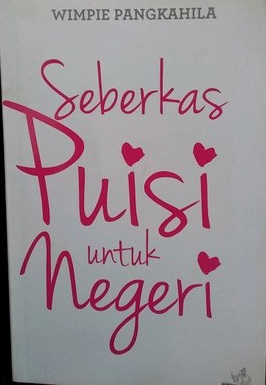 WIMPIE PANGKAHILA
Seberkas
Puisi
untuk
Negeri